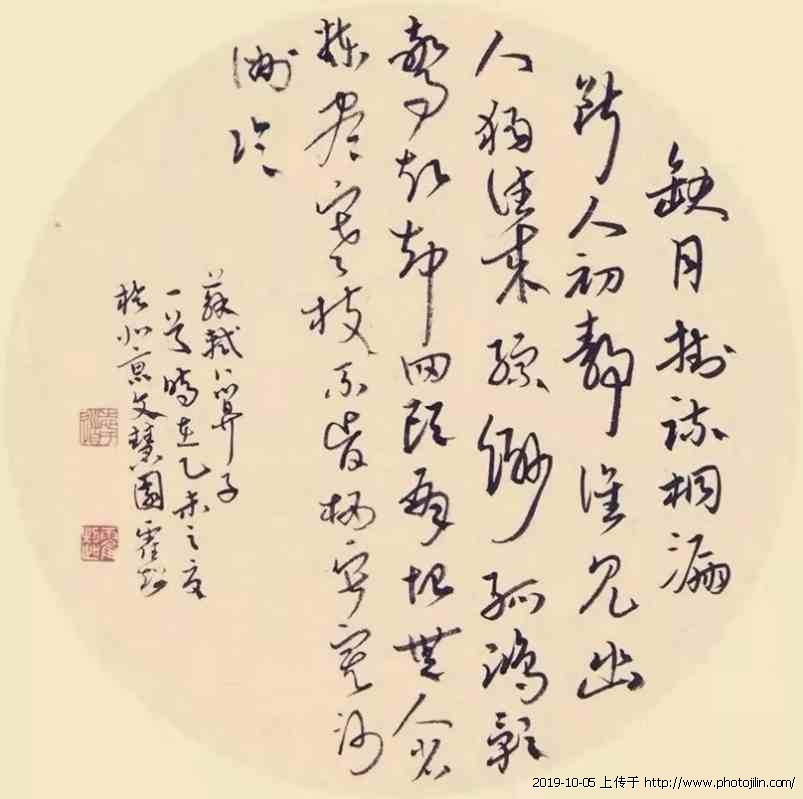 缺月掛疏桐漏
断人初静谁见幽
人独往来缥缈孤鸿影
驚起却回頭有恨無人省
揀盡寒枝不肯栖寂寞沙
洲冷
蘇軾卜算子
一首時在乙未之夏
於北京文慧園霍
2019-10-05 上传于 http://www.photojilin.com/